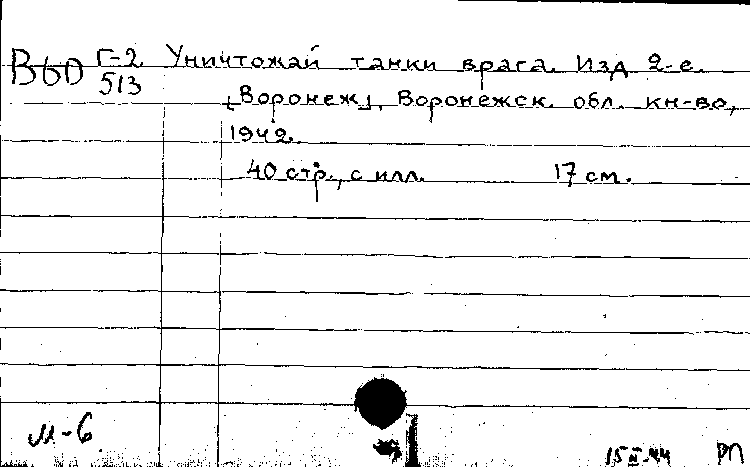 ВБО Г-2 Уничтожай танки врага. Изд 2-е.
513 [Воронеж], Воронежск. обл. кн-во,
1942.
40 стр., с илл. 17 см.
М-6
15 II 44 РП